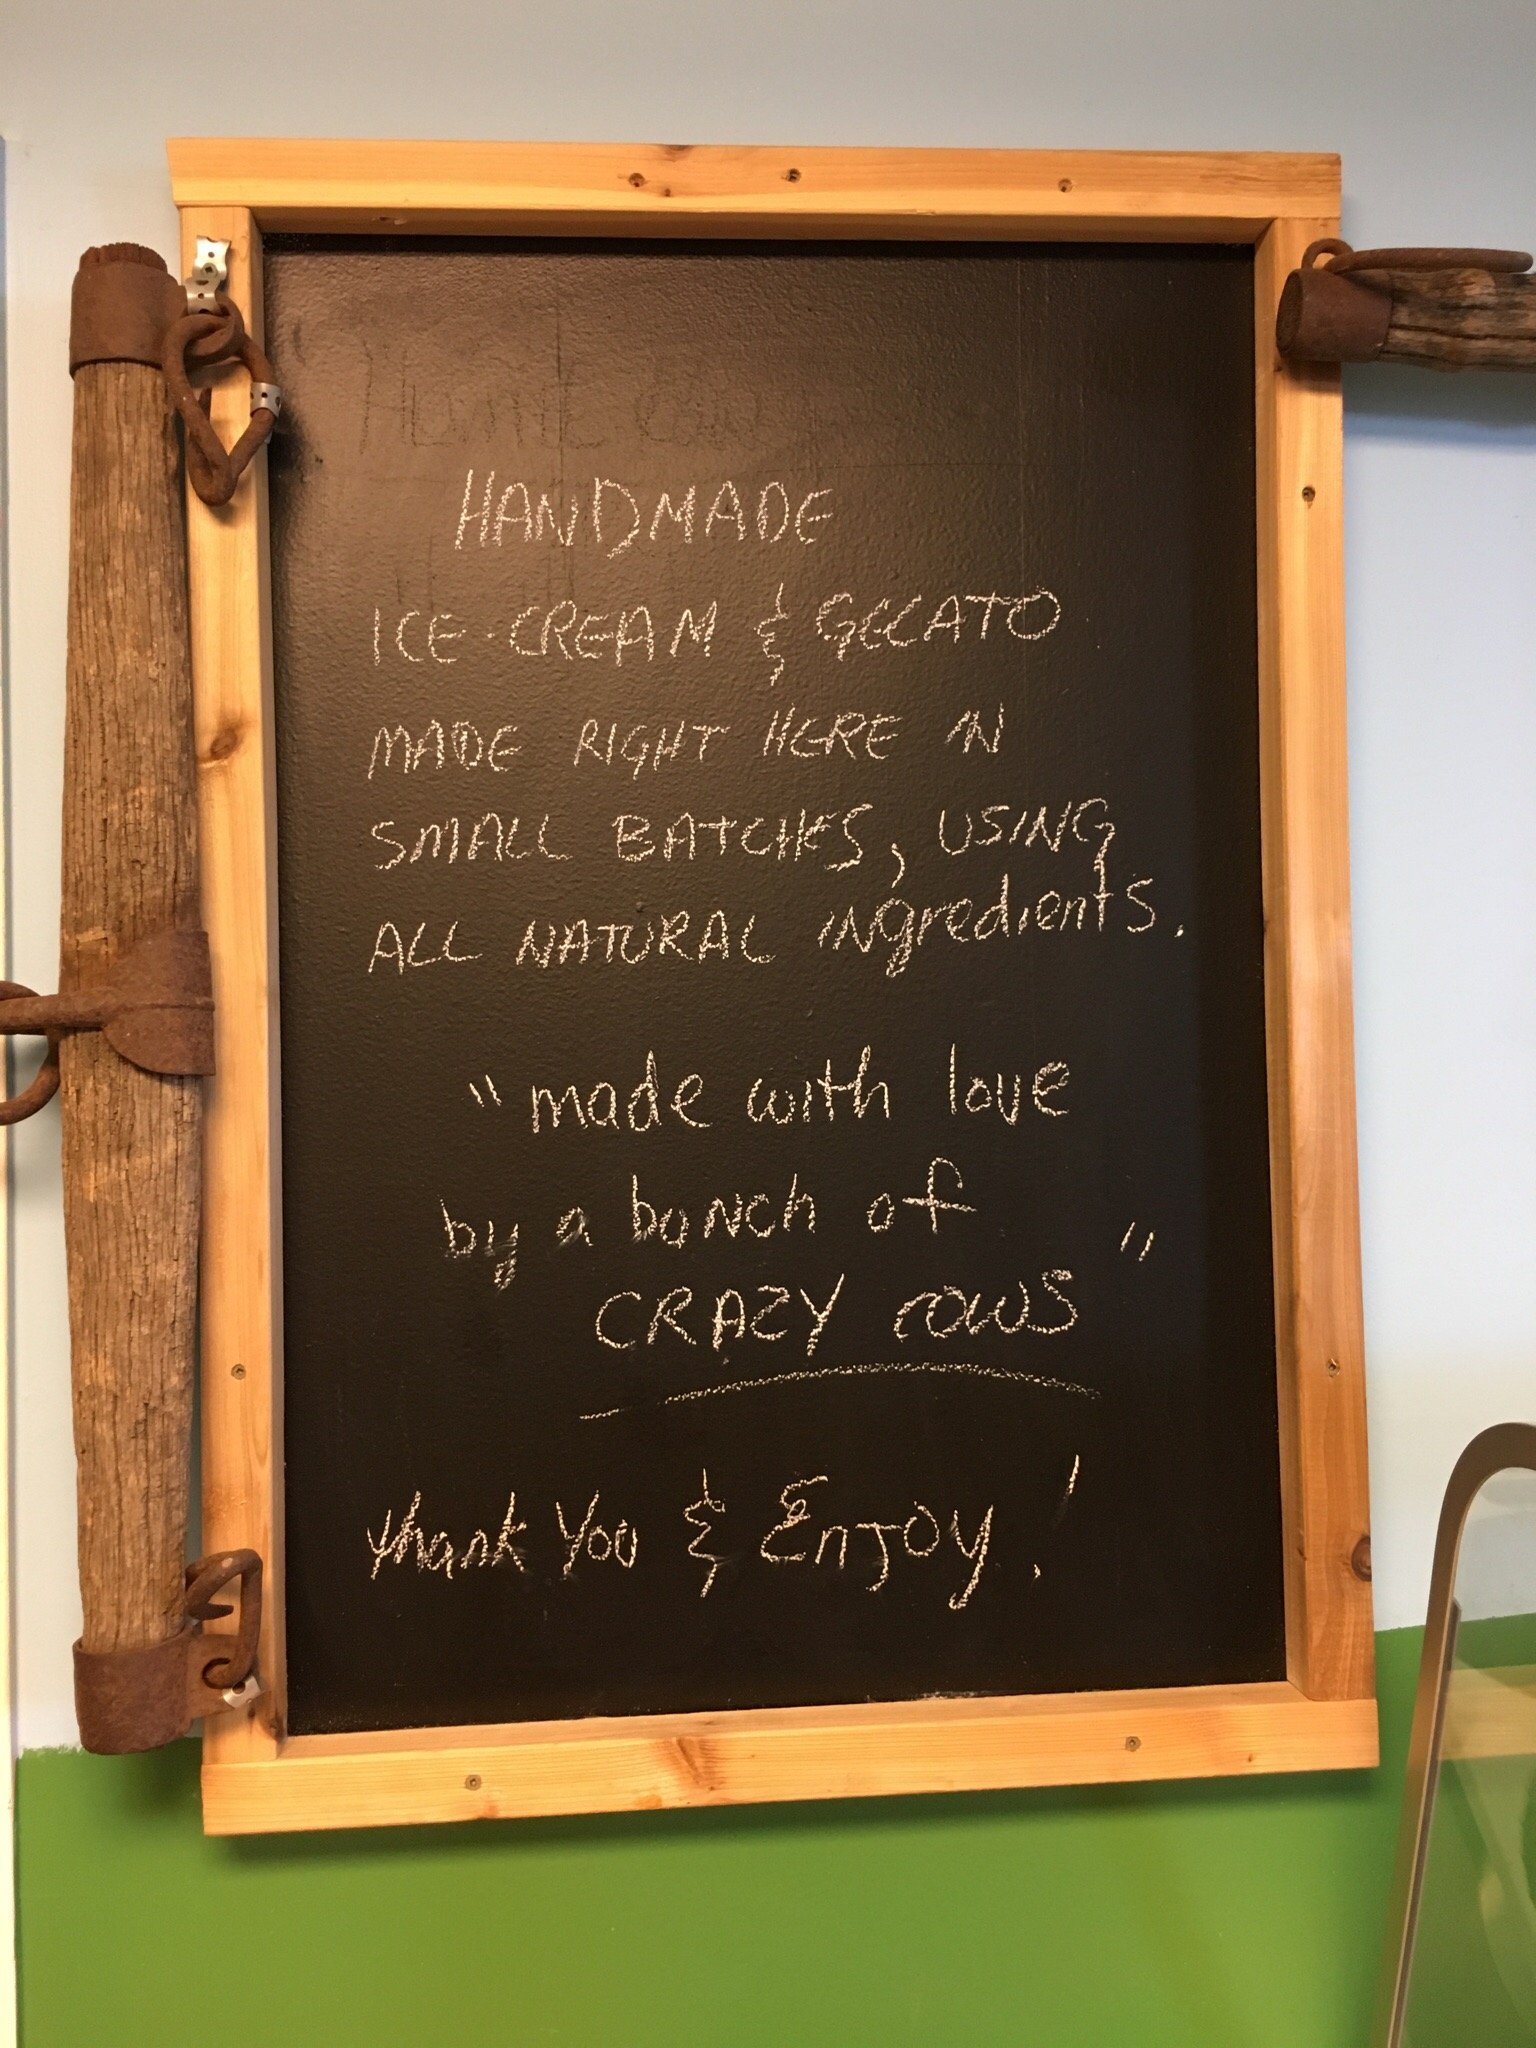 HANDMADE
ICE-CREAM & GELATO
MADE RIGHT HERE IN
SMALL BATCHES, USING
ALL NATURAL INgredients.
"made with love
by a bunch of
CRAZY COWS"
thank You & Enjoy!